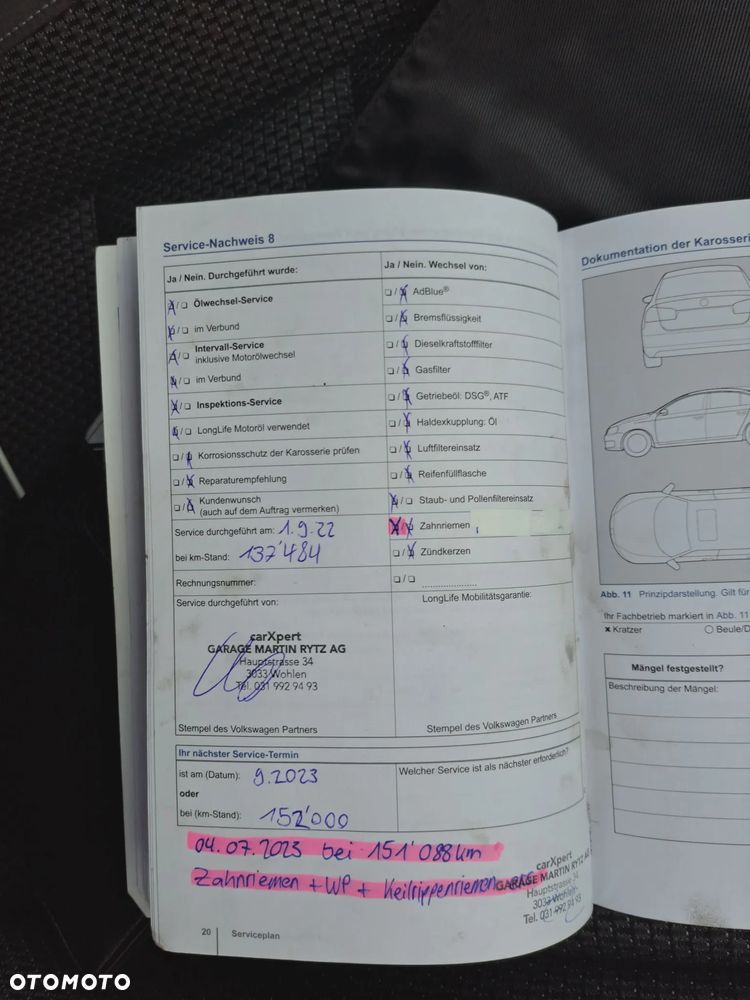 Service-Nachweis 8
Ja / Nein. Durchgeführt wurde:
X/☐ Ölwechsel-Service
X/☐ im Verbund
X/☐ Intervall-Service
inklusive Motorölwechsel
X/☐ im Verbund
X/☐ Inspektions-Service
X/☐ LongLife Motoröl verwendet
☐/X Korrosionsschutz der Karosserie prüfen
☐/X Reparaturempfehlung
☐/X Kundenwunsch
(auch auf dem Auftrag vermerken)
Service durchgeführt am: 1.9.22
bei km-Stand: 137'484
Rechnungsnummer:
Service durchgeführt von:
carXpert
GARAGE MARTIN RYTZ AG
Hauptstrasse 34
3033 Wohlen
Tel. 031 992 94 93
Stempel des Volkswagen Partners
Ja / Nein. Wechsel von:
☐/X AdBlue®
☐/X Bremsflüssigkeit
☐/X Dieselkraftstofffilter
☐/X Gasfilter
☐/X Getriebeöl: DSG®, ATF
☐/X Haldexkupplung: Öl
☐/X Luftfiltereinsatz
☐/X Reifenfüllflasche
X/☐ Staub- und Pollenfiltereinsatz
X/X Zahnriemen
☐/X Zündkerzen
☐/☐ ....................
LongLife Mobilitätsgarantie:
Stempel des Volkswagen Partners
Ihr nächster Service-Termin
ist am (Datum): 9.2023
oder
bei (km-Stand): 152'000
Welcher Service ist als nächster erforderlich?
04.07.2023 bei 151'088km
Zahnriemen + WP + Keilrippenriemen
carXpert
GARAGE MARTIN RYTZ AG
Hauptstrasse 34
3033 Wohlen
Tel. 031 992 94 93
20 Serviceplan
Dokumentation der
Abb. 11 Prinzipdarstellung. Gilt für
Ihr Fachbetrieb markiert in Abb. 11
x Kratzer ○ Beule/D
Mängel festgestellt?
Beschreibung der Mängel:
OTOMOTO